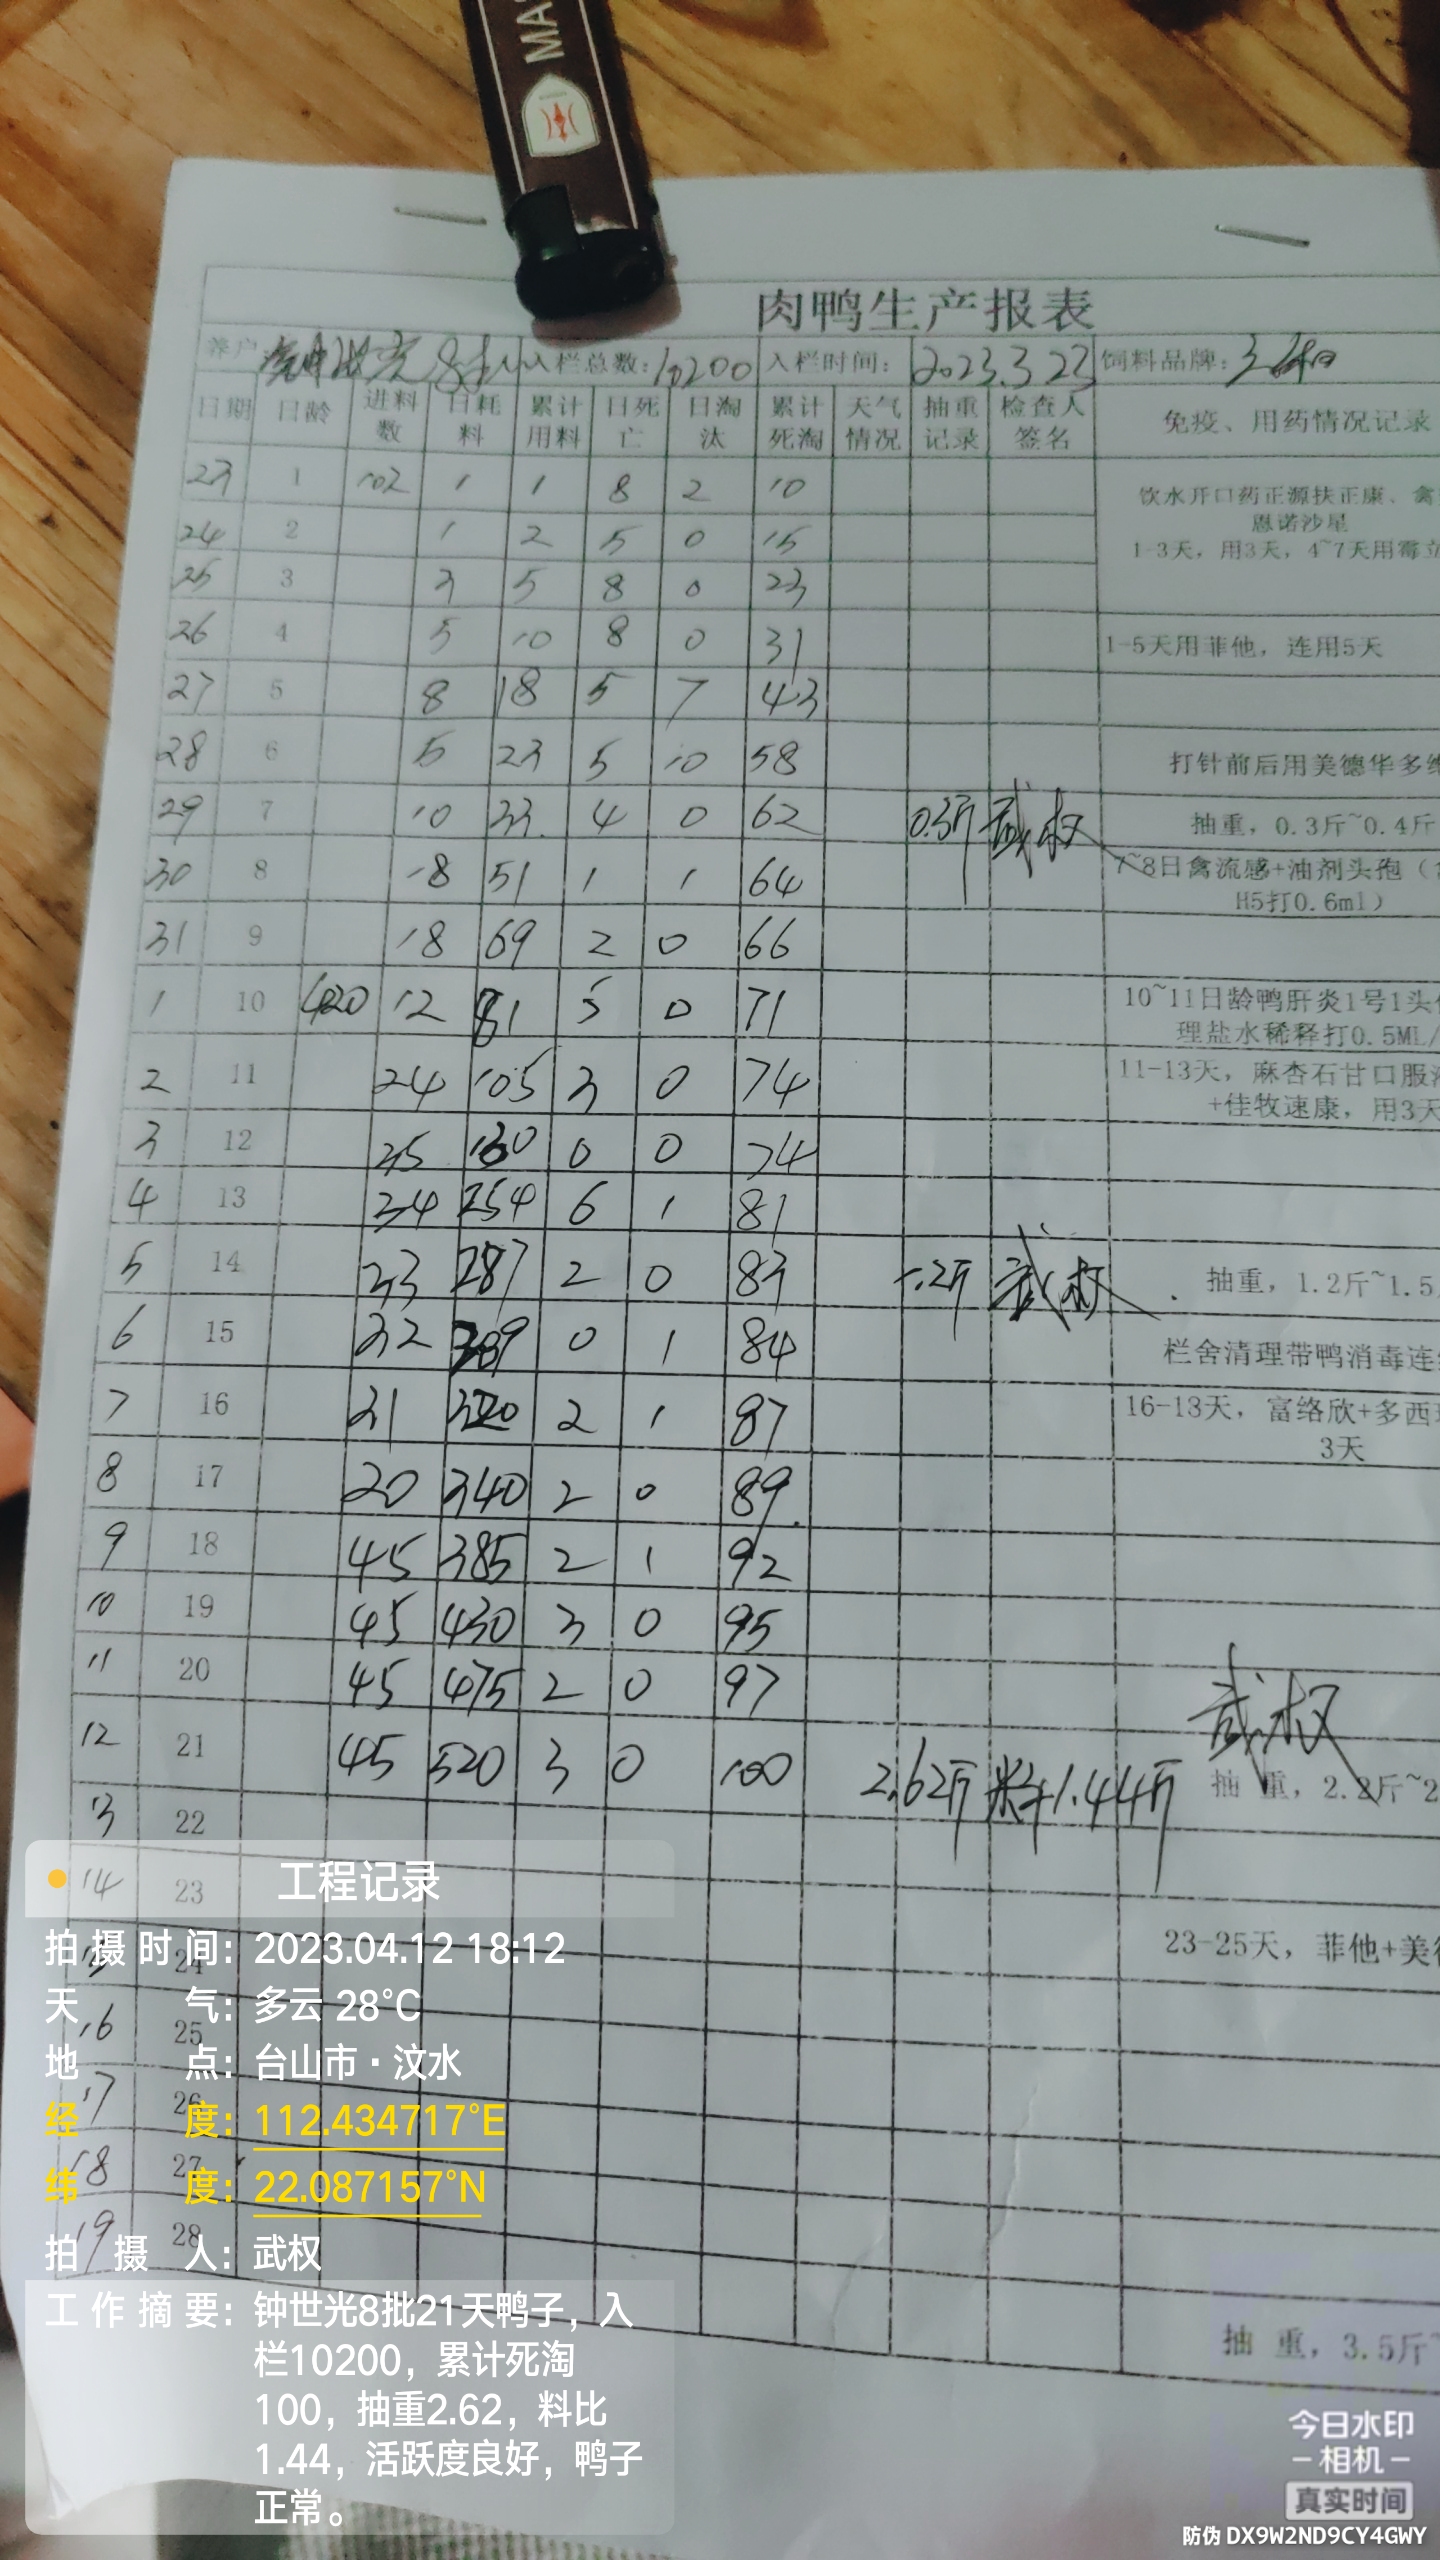 MA
肉鸭生产报表
养户 入栏总数:10200 入栏时间: 2023.3.23 饲料品牌:
日期 日龄 进料数 日耗料 累计用料 日死亡 日淘汰 累计死淘 天气情况 抽重记录 检查人签名 免疫、用药情况记录
23 1 102 1 1 8 2 10
饮水开口药正源扶正康、禽
恩诺沙星
1-3天，用3天，4~7天用霉立
24 2 1 2 5 0 15
25 3 3 5 8 0 23
26 4 5 10 8 0 31 1-5天用菲他，连用5天
27 5 8 18 5 7 43
28 6 5 23 5 10 58 打针前后用美德华多维
29 7 10 33 4 0 62 0.3斤 武权 抽重，0.3斤~0.4斤
30 8 18 51 1 1 64 7~8日禽流感+油剂头孢（
H5打0.6ml）
31 9 18 69 2 0 66
1 10 420 12 81 5 0 71 10~11日龄鸭肝炎1号1头份
理盐水稀释打0.5ML/
2 11 24 105 3 0 74 11-13天，麻杏石甘口服液
+佳牧速康，用3天
3 12 35 130 0 0 74
4 13 34 254 6 1 81
5 14 33 287 2 0 83 1.2斤 武权 抽重，1.2斤~1.5
6 15 32 0 1 84 栏舍清理带鸭消毒连
7 16 31 320 2 1 87 16-13天，富络欣+多西环
3天
8 17 20 340 2 0 89
9 18 45 385 2 1 92
10 19 45 430 3 0 95
11 20 45 475 2 0 97
武权
12 21 45 520 3 0 100 2.62斤 料1.44斤 抽 重，2.2斤~2
13 22
14 23
15 24 23-25天，菲他+美德
16 25
17 26
18 27
19 28
抽 重，3.5斤~
工程记录
拍摄时间：2023.04.12 18:12
天 气：多云 28°C
地 点：台山市·汶水
经 度：112.434717°E
纬 度：22.087157°N
拍 摄 人：武权
工作摘要：钟世光8批21天鸭子，入
栏10200，累计死淘
100，抽重2.62，料比
1.44，活跃度良好，鸭子
正常。
今日水印
-相机-
真实时间
防伪 DX9W2ND9CY4GWY